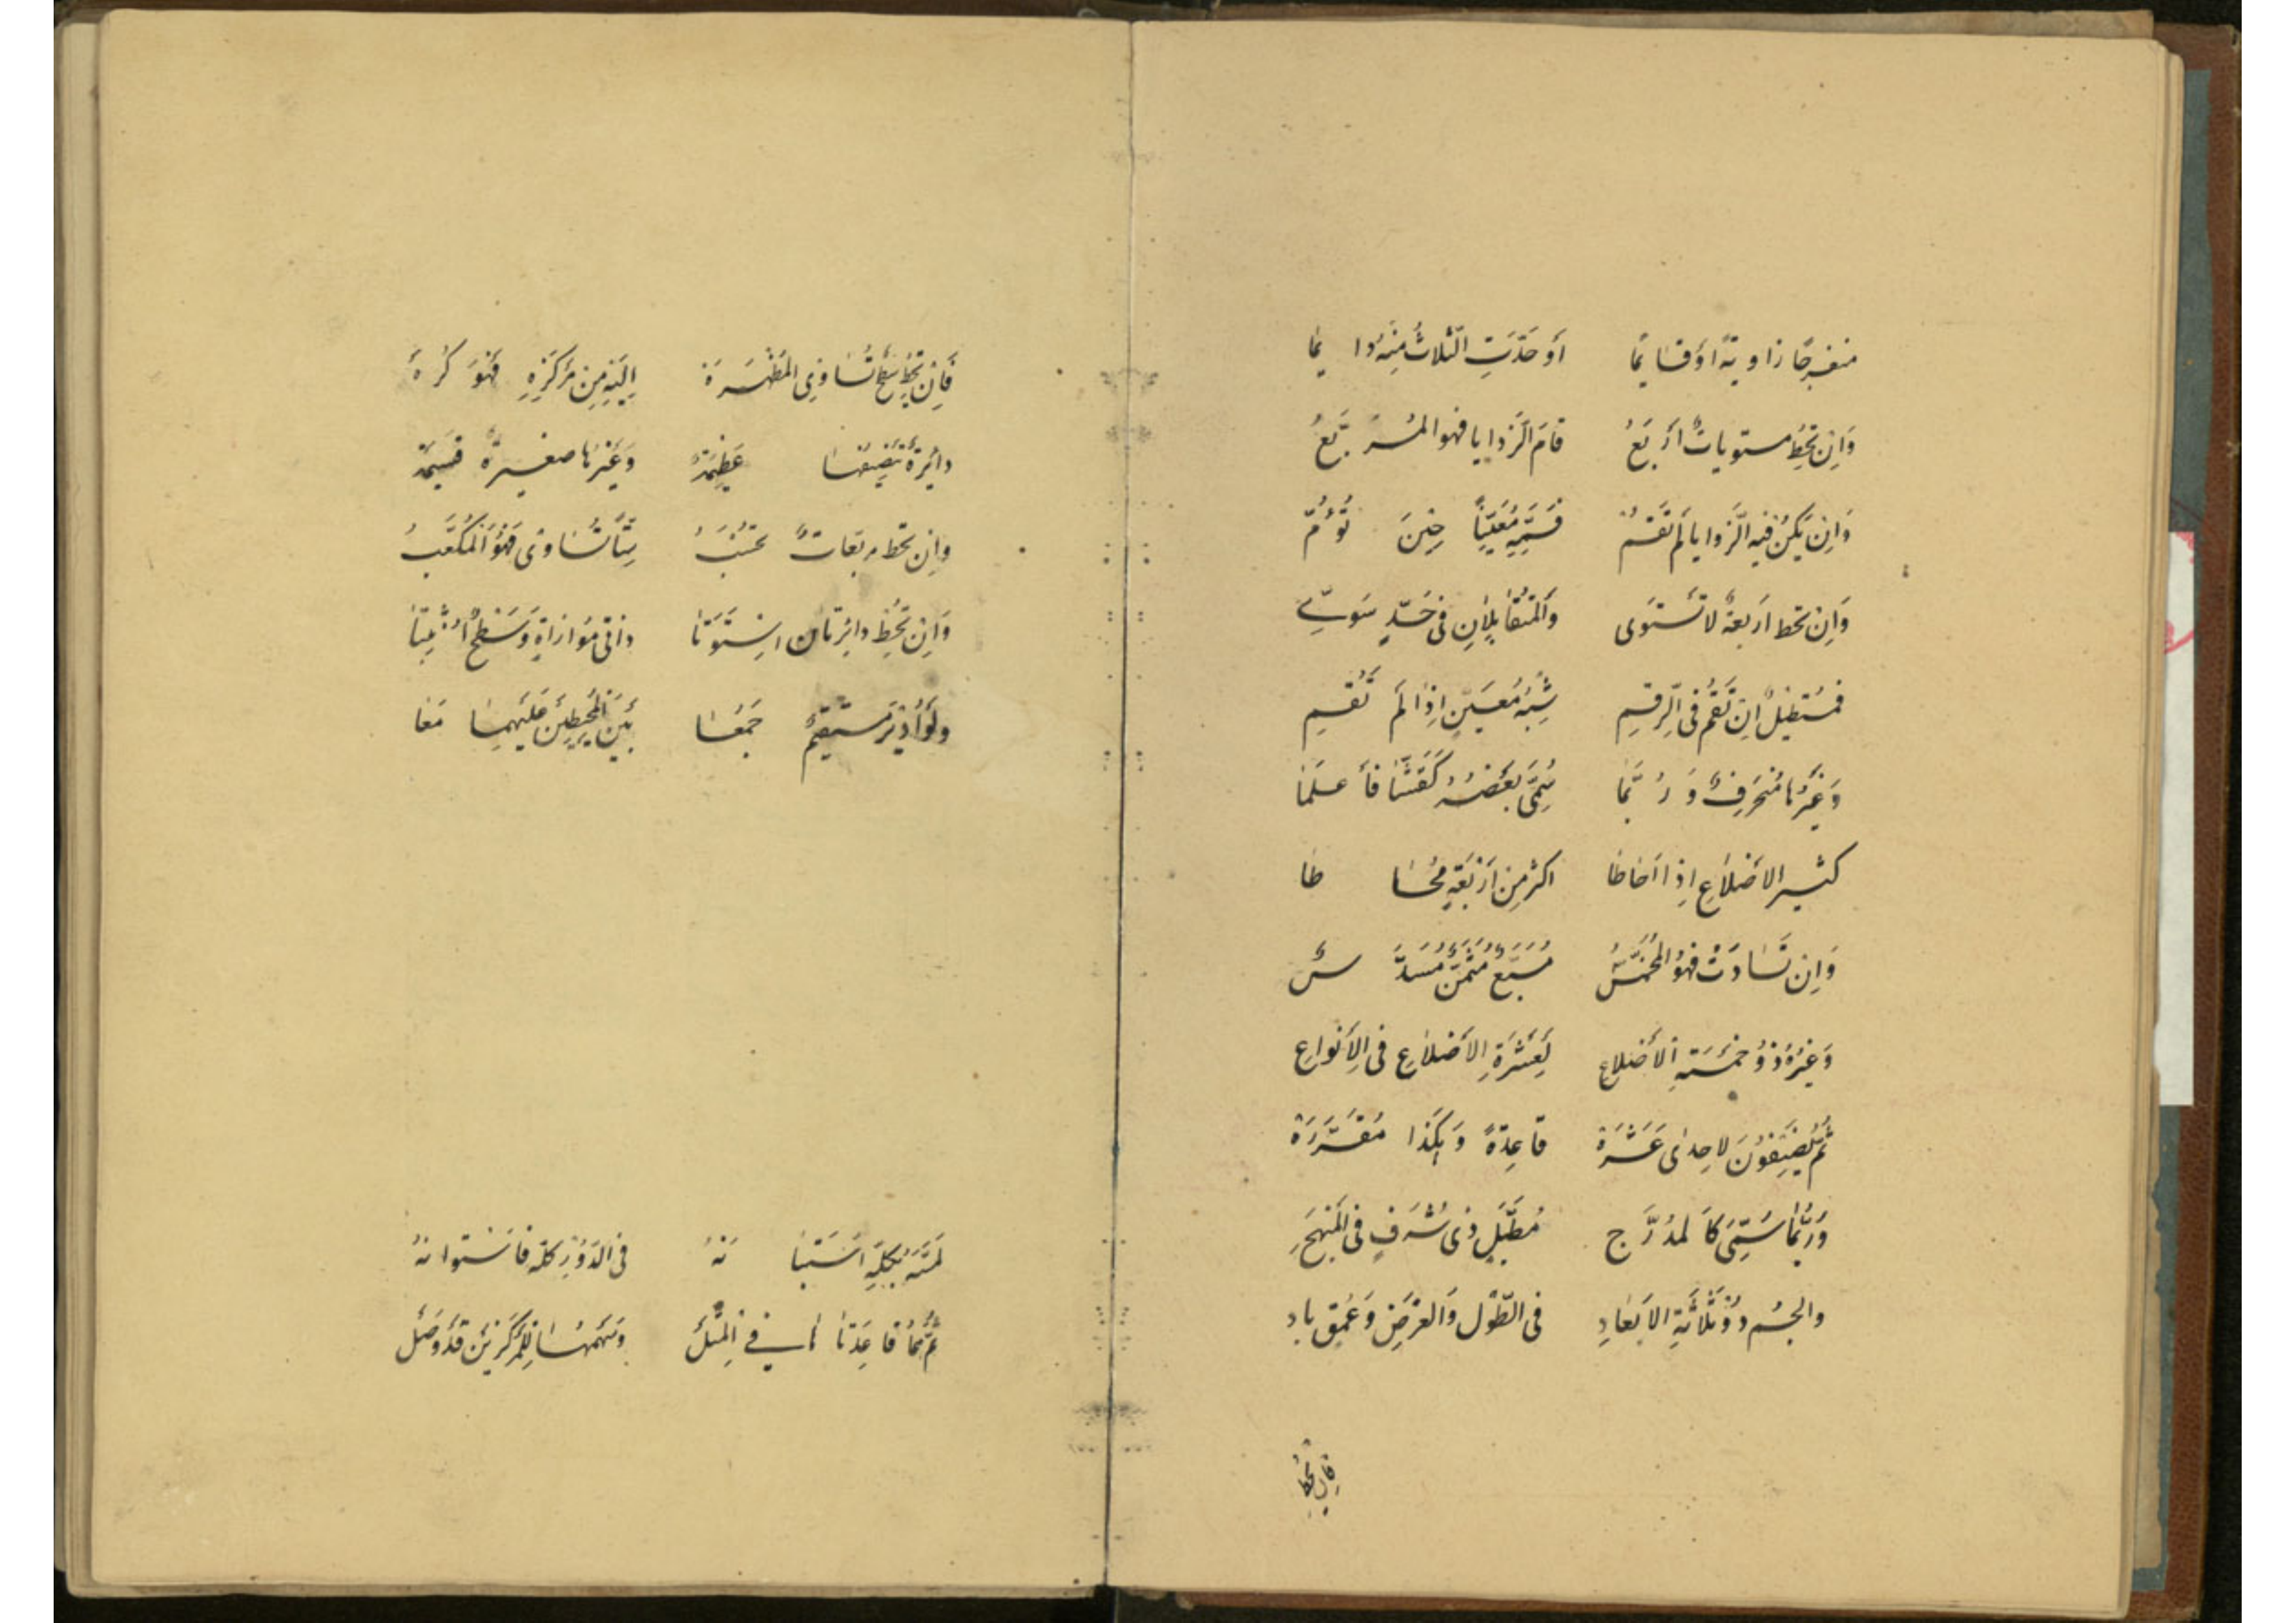 منفرجًا زاويةً او قائمًا أو حَدَّتِ الثّلاثُ مِنهُ دائِمًا
وَاِن تُحِط مستوياتٌ اَربَعُ قامَ الزّوايا فهو المُرَبَّعُ
وَاِن يَكُن فيه الزّوايا لَم تَقُم فَسَمِّهِ مُعَيَّنًا حِينَ تَؤُمّ
وَاِن تحط اَربعةٌ لا تَستَوى وَالمُتقابِلانِ فى حَدٍّ سَوِىّ
فمُستطيلٌ اِن تَقُم فى الرَّقمِ شِبهُ مُعَيَّنٍ اِذا لَم تَقُمِ
وَغَيرُها مُنحَرِفٌ وَرُبَّما سُمِّىَ بَعضُهُ كَقِثّا فَاعلَما
كثيرالاَضلاعِ اِذا اَحاطا اكثرُ مِن اَربَعَةٍ مُحاطا
وَاِن تَساوَت فهوُ المُخَمَّسُ مُسَبَّعٌ مُثَمَّنٌ مُسَدَّسُ
وَغَيرُهُ ذُو خَمسَةِ الأَضلاعِ لِعَشرَةِ الاَضلاعِ فى الاَنواعِ
ثُمَّ يُضيفُونَ لاِحدىٰ عَشَرَة قاعِدَةً وَهكَذا مُقَرَّرَة
وَرُبَّما سُمِّىَ كَالمُدَرَّجِ مُطَبَّلٍ ذى شُرَفٍ فى المَنهَجِ
والجِسمُ ذُو ثَلاثَةِ الاَبعادِ فى الطّولِ وَالعَرضِ وَعُمقٍ بادِ
فإن تحط
فَاِن تُحِط سَطحٌ تُساوِى المَظهَرَة اِلَيهِ مِن مَركَزِهِ فَهوَ كُرَة
دائِرةٌ تنصِفُها عَظيمَة وَغَيرُها صغيرةٌ قَسيمَة
وَاِن تحط مربّعاتٌ تُحسَبُ سِتًّا تُساوى فَهُوَ المُكَعَّبُ
وَاِن تُحِط دائِرتانِ اِستَوَتا ذاتَى مُوازاةٍ وَسَطحٌ اُثبِتا
وَلَو اُديرَ مستقيمٌ جَمَعا بَينَ المُحيطَينِ عَلَيهِما مَعا
لَمَسَّهُ بِكُلِّهِ استبانَهُ فى الدَّورِ كلّه فاسطوانهُ
ثُمَّ هُما قاعِدَتاها فى المَثَل وَسَهمُها لِلمَركَزَينِ قَد وَصَل